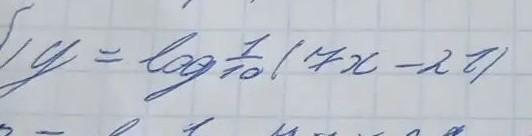 y = log 1/10 (7x - 21)